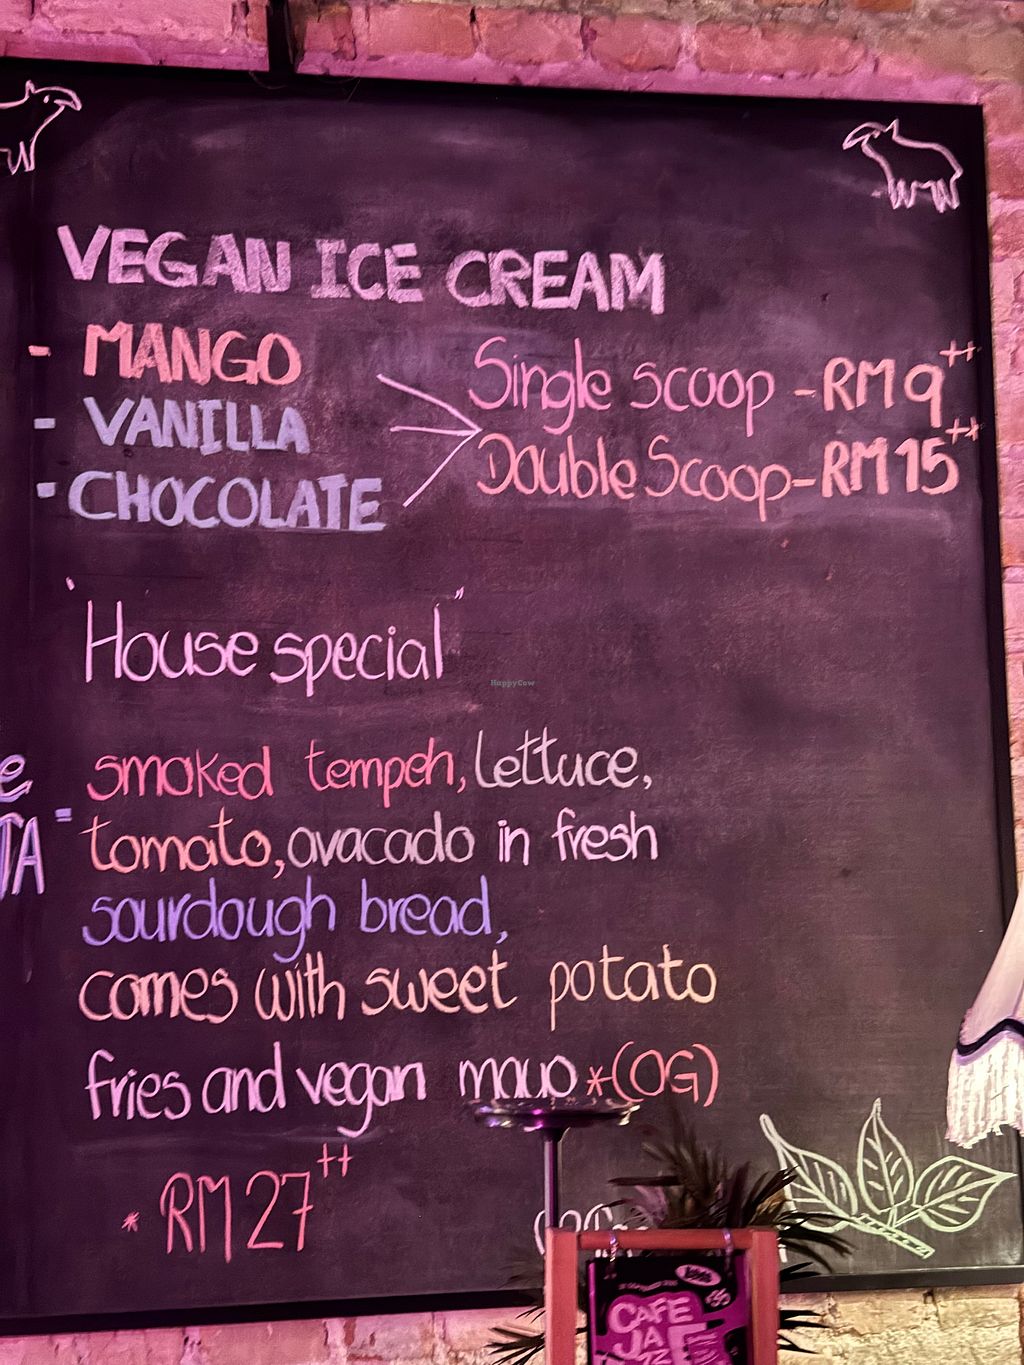 VEGAN ICE CREAM
- MANGO
- VANILLA
- CHOCOLATE
Single scoop - RM 9++
Double Scoop - RM 15++
"House special"
smoked tempeh, Lettuce,
tomato, avacado in fresh
sourdough bread,
comes with sweet potato
fries and vegan mayo *(OG)
* RM 27++
e
TA
HappyCow
CAFE